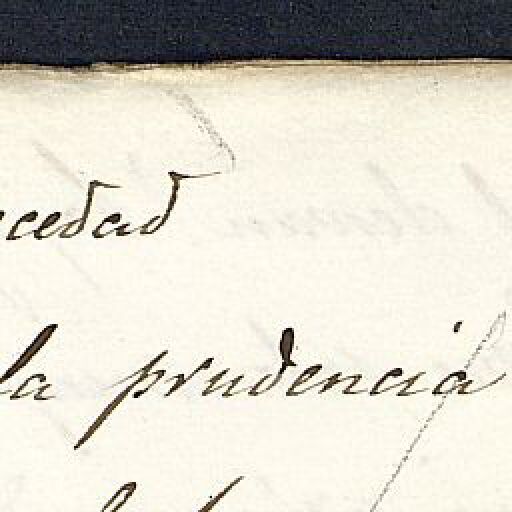 cedad
la prudencia